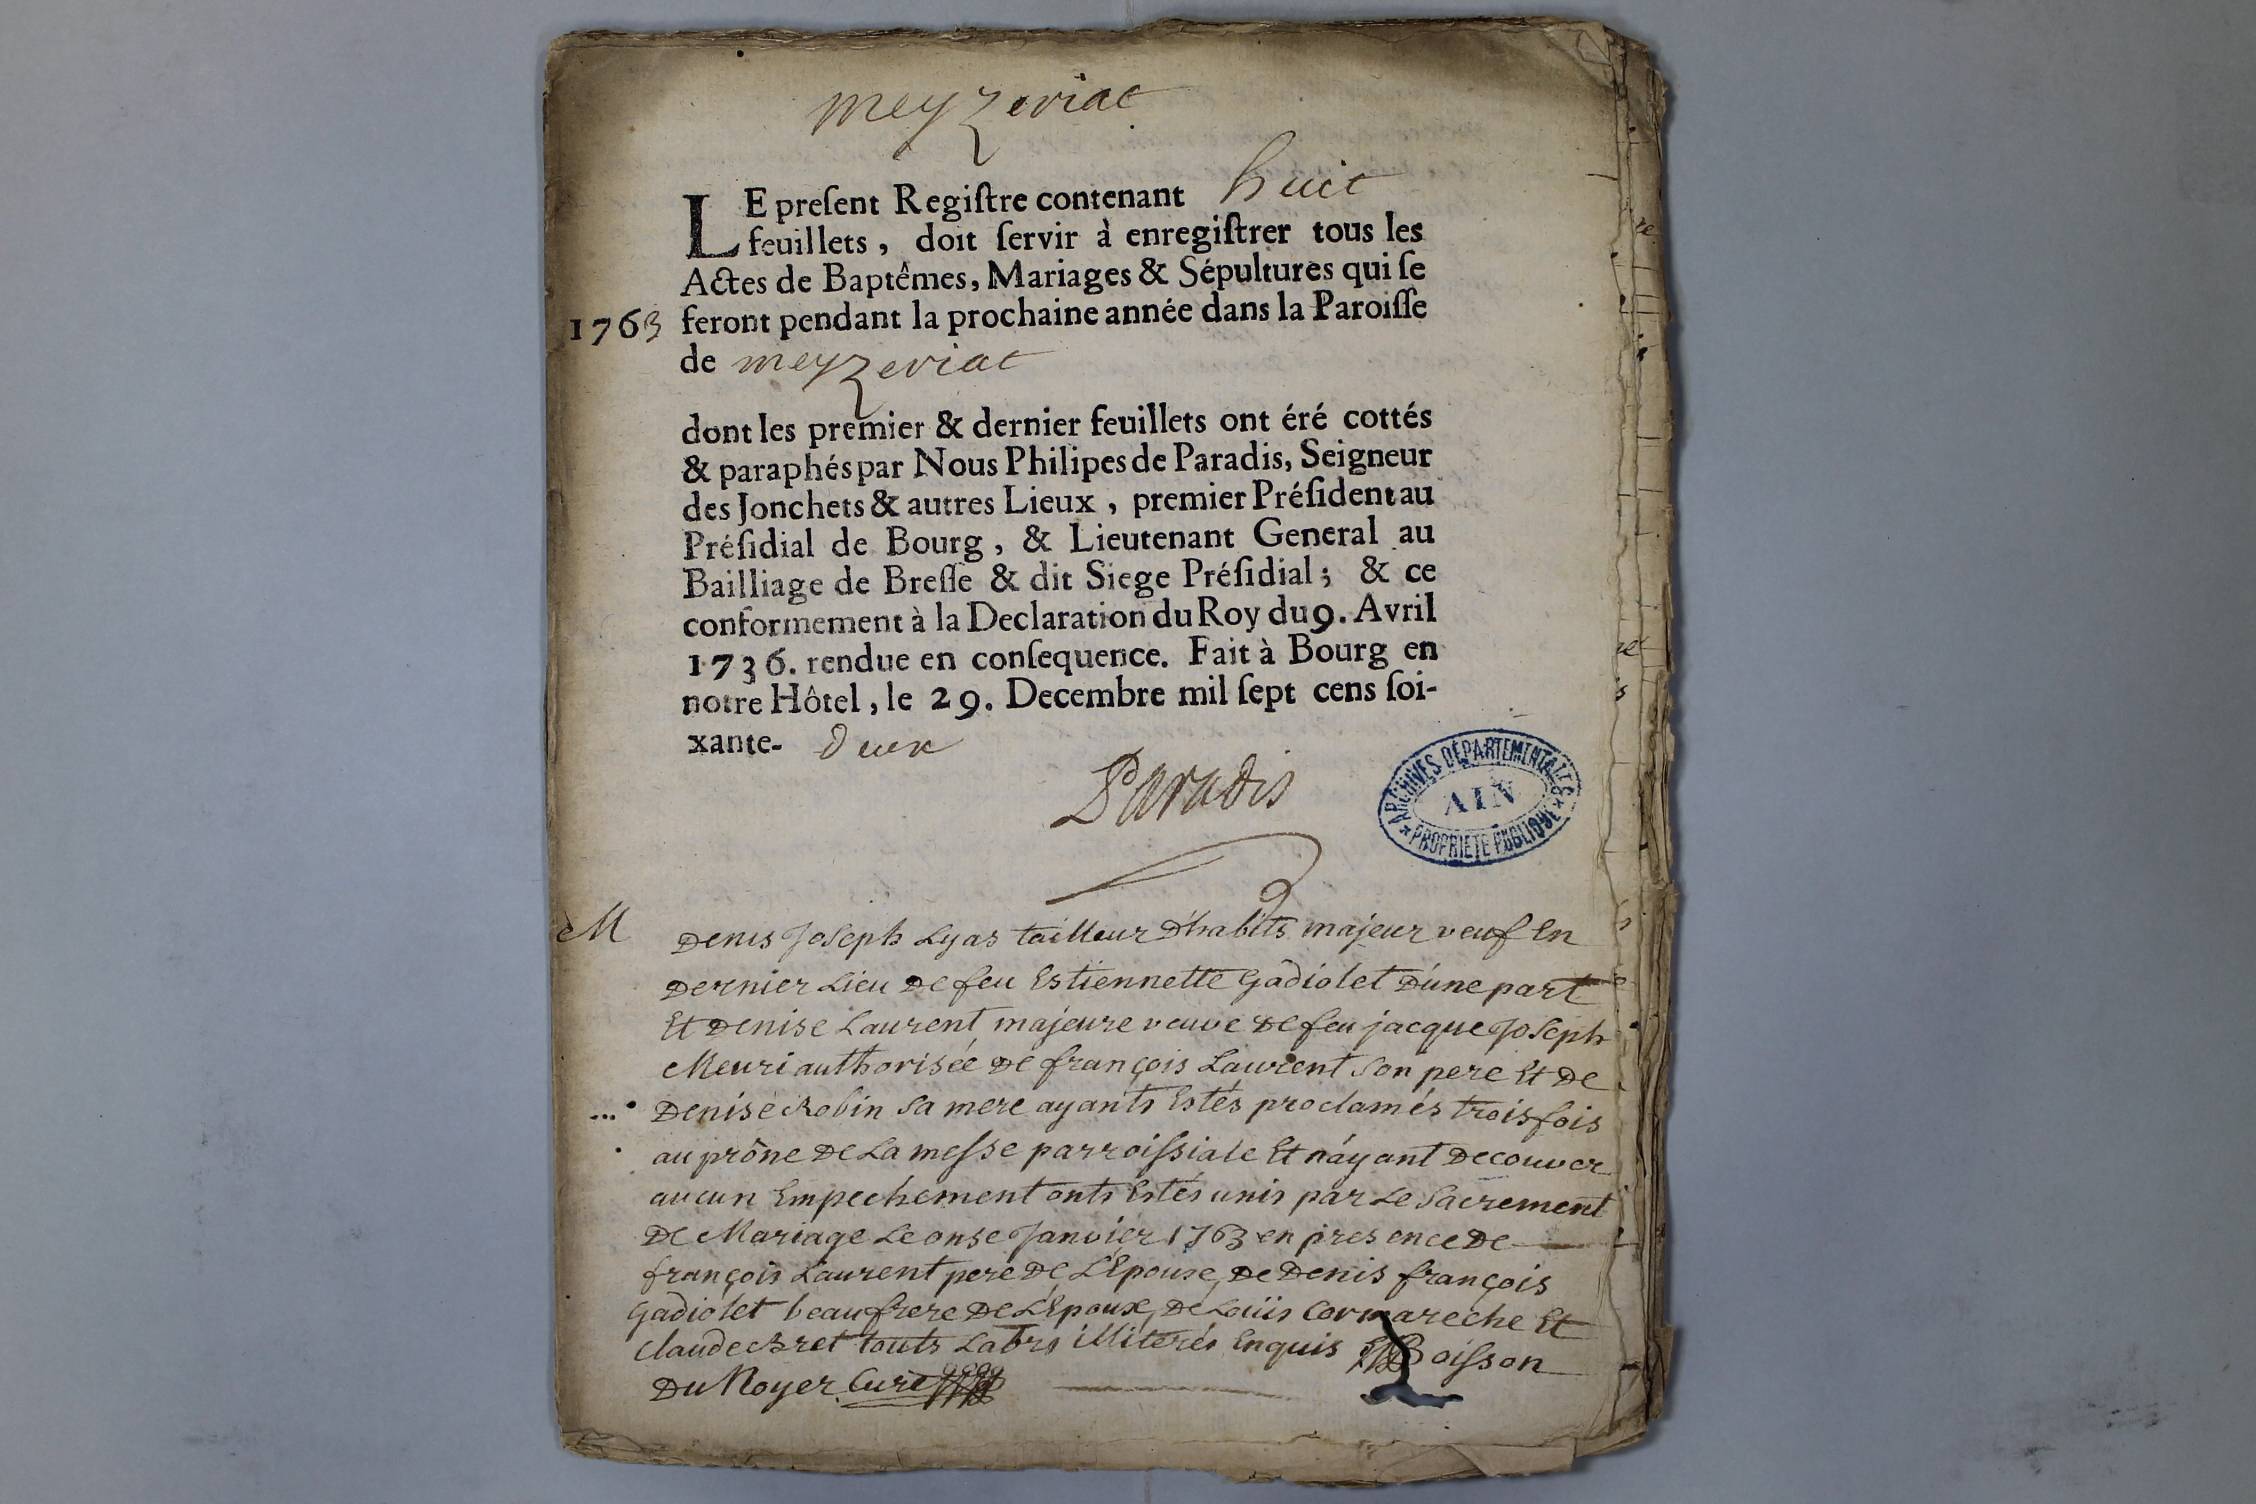 meyzeriat
LE preſent Regiſtre contenant huit
feuillets, doit ſervir à enregiſtrer tous les
Actes de Baptêmes, Mariages & Sépultures qui ſe
1763 feront pendant la prochaine année dans la Paroiſſe
de meyzeriat
dont les premier & dernier feuillets ont éré cottés
& paraphés par Nous Philipes de Paradis, Seigneur
des Jonchets & autres Lieux, premier Préſident au
Préſidial de Bourg, & Lieutenant General au
Bailliage de Breſſe & dit Siege Préſidial; & ce
conformement à la Declaration du Roy du 9. Avril
1736. rendue en conſequence. Fait à Bourg en
notre Hôtel, le 29. Decembre mil ſept cens ſoi-
xante- deux
Paradis
ARCHIVES DÉPARTEMENTALES
AIN
PROPRIETE PUBLIQUE
M Denis Joseph Lyas tailleur D'habits majeur veuf En
Dernier Lieu De feu Estiennette Gadiolet D'une part
Et Denise Laurent majeure veuve De feu jacque Joseph
Meuri authorisée De françois Laurent Son pere Et De
Denise Robin Sa mere ayants Estés proclamés trois fois
au prône De La meſse parroiſsiale Et n'ayant Decouver
aucun Empechement onts Estés unis par Le Sacrement
De Mariage Le onse Janvier 1763 en presence De
françois Laurent pere De L'Epouse, De Denis françois
Gadiolet beaufrere De L'Epoux, De Loüis Cormareche Et
Claude Bret touts Labrs illiterés Enquis Boiſson
Du Noyer Curé